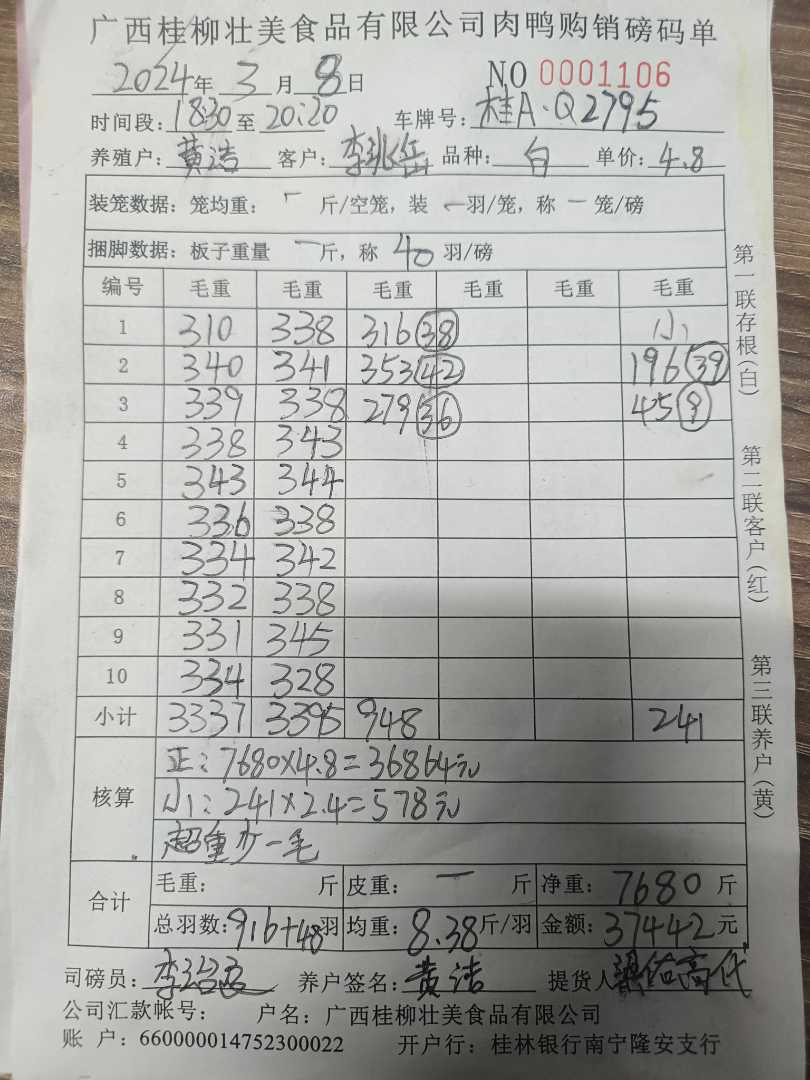 广西桂柳壮美食品有限公司肉鸭购销磅码单
2024年 3 月 8 日 NO 0001106
时间段: 18:30 至 20:20 车牌号: 桂A·Q2795
养殖户: 黄洁 客户: 李兆岳 品种: 白 单价: 4.8
装笼数据: 笼均重: 一 斤/空笼, 装 一 羽/笼, 称 一 笼/磅
捆脚数据: 板子重量 一 斤, 称 40 羽/磅
编号 毛重 毛重 毛重 毛重 毛重 毛重
1 310 338 316(38) 小
2 340 341 353(42) 196(39)
3 339 338 279(36) 45(9)
4 338 343
5 343 344
6 336 338
7 334 342
8 332 338
9 331 345
10 334 328
小计 3337 3395 948 241
核算 正: 7680×4.8=36864元
小: 241×2.4=578元
超重少一毛
合计 毛重: 斤 皮重: 一 斤 净重: 7680 斤
总羽数: 916+48 羽 均重: 8.38 斤/羽 金额: 37442 元
司磅员: 李 养户签名: 黄洁 提货人
公司汇款帐号: 户名: 广西桂柳壮美食品有限公司
账 户: 660000014752300022 开户行: 桂林银行南宁隆安支行
第一联存根(白)
第二联客户(红)
第三联养户(黄)